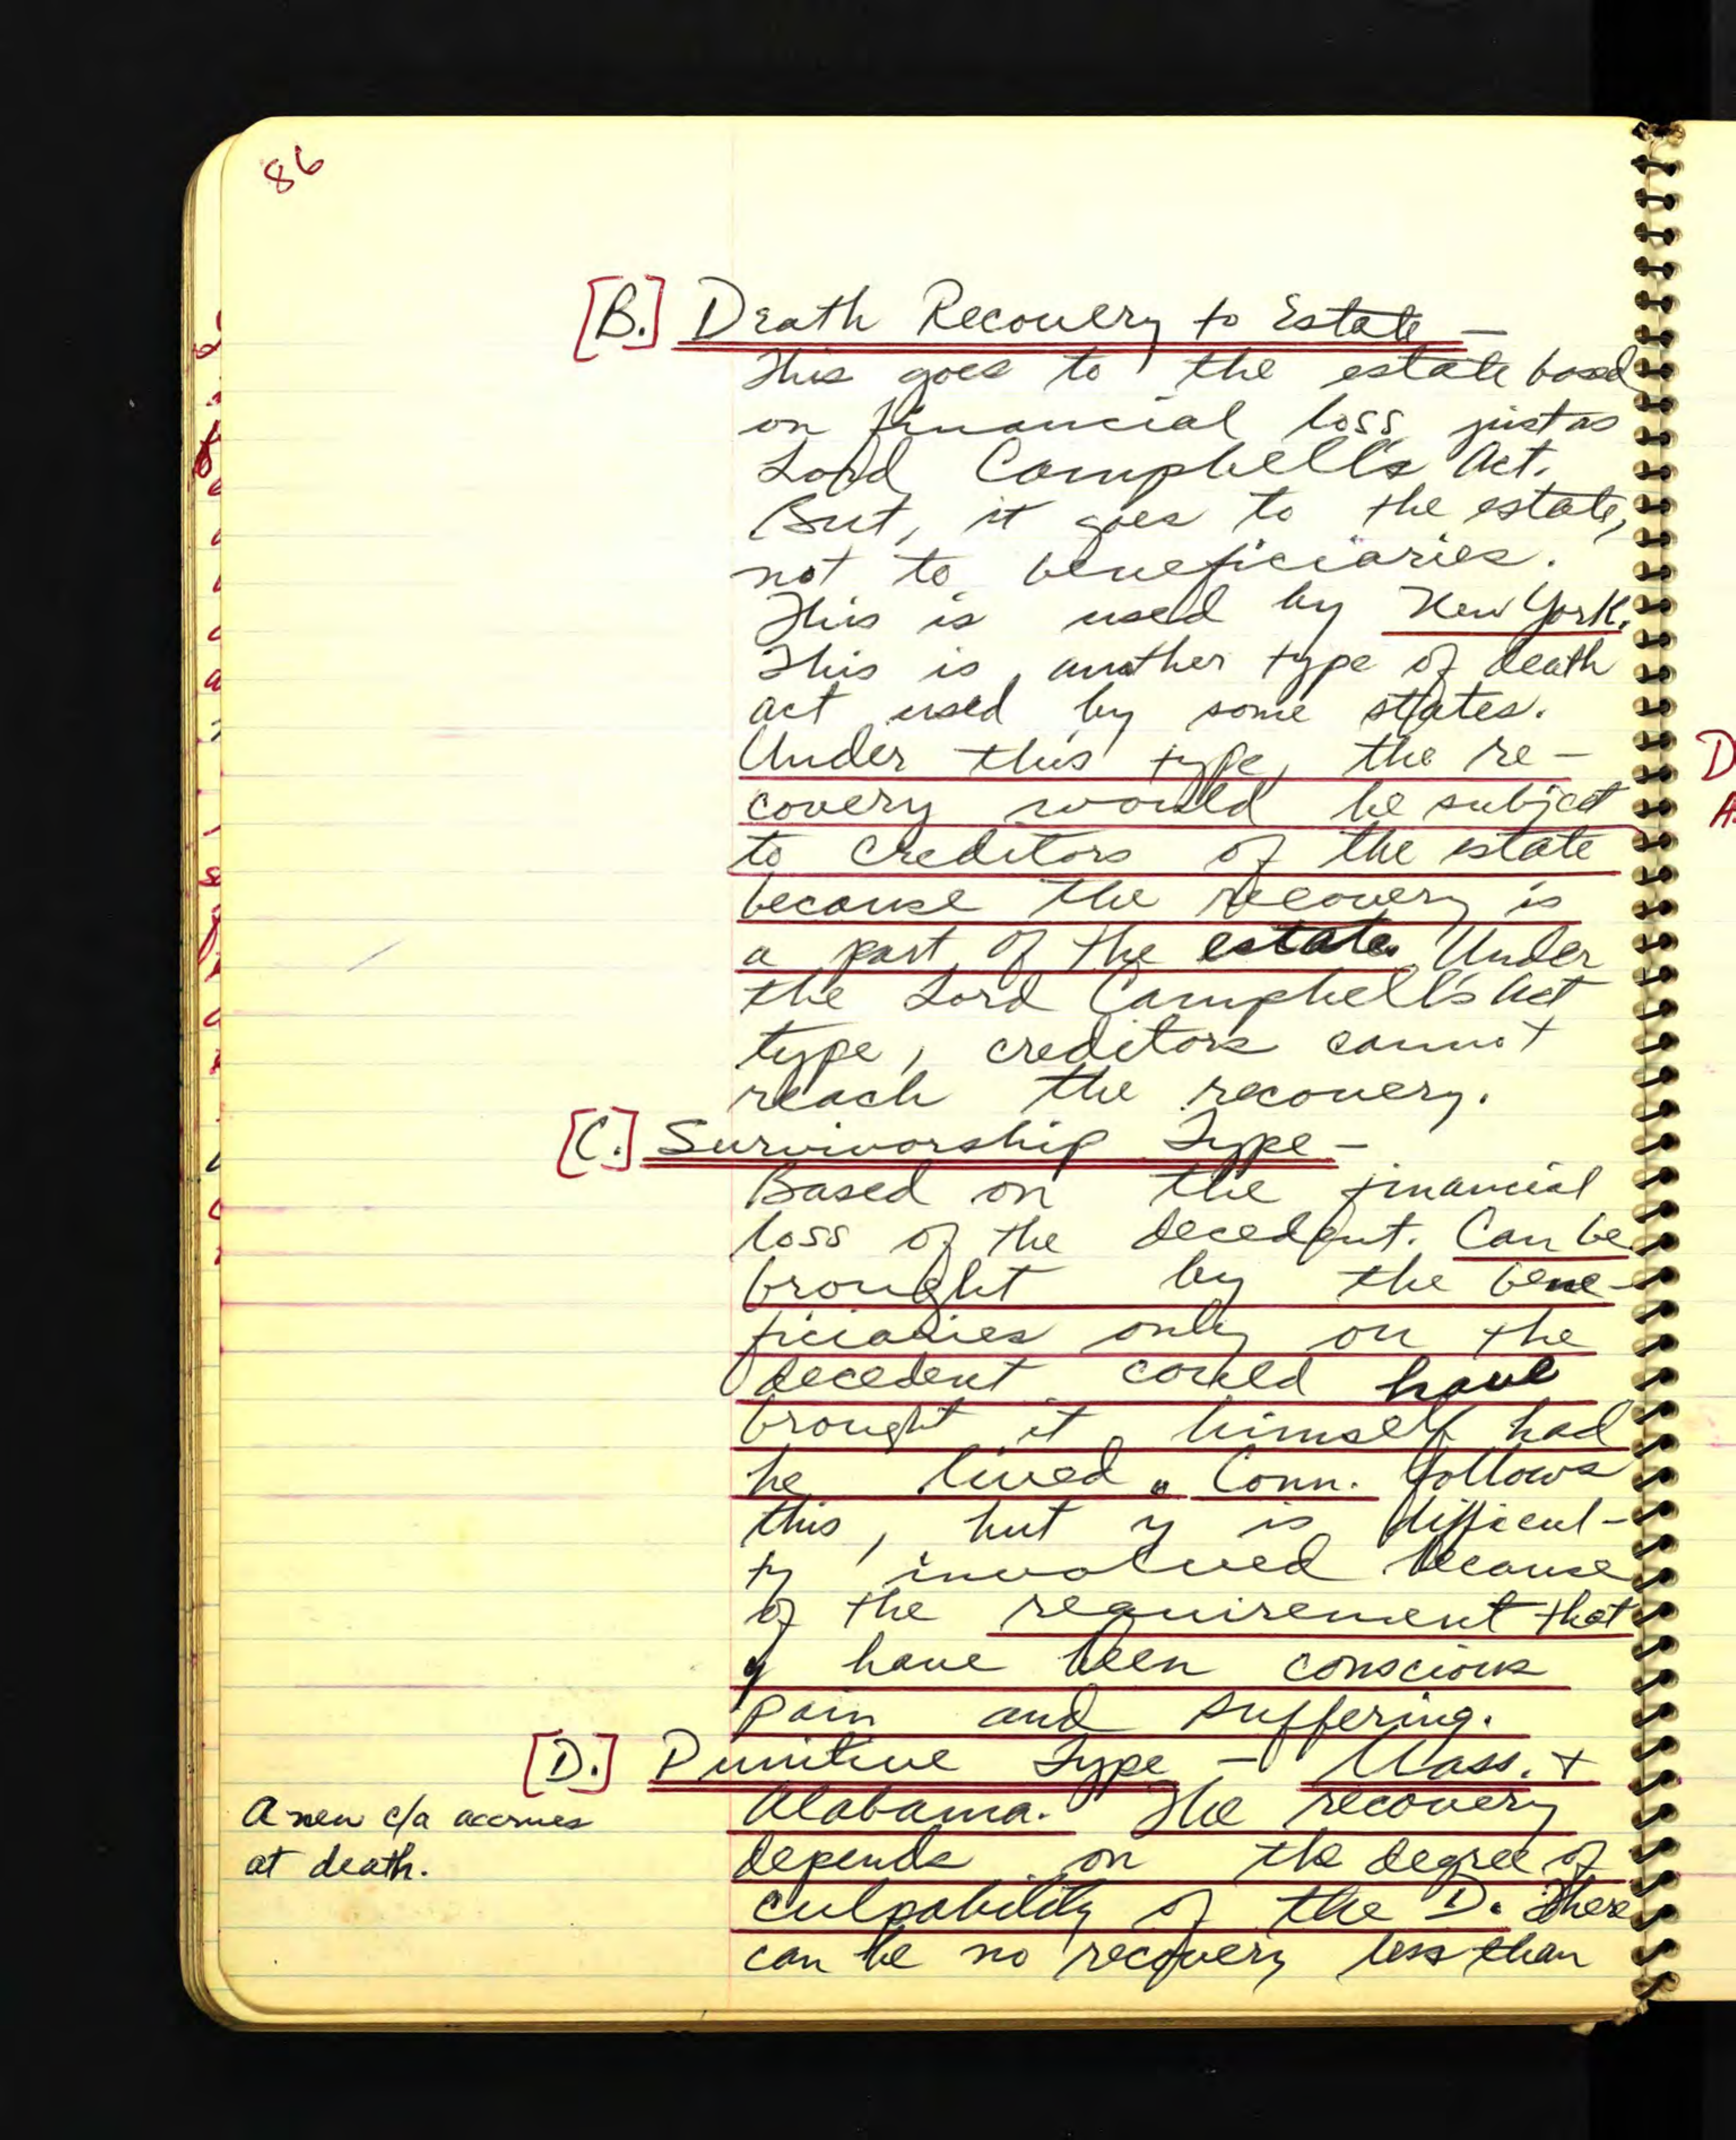 86
[B.] Death Recovery to Estate —
This goes to the estate based
on financial loss just as
Lord Campbell's Act.
But, it goes to the estate,
not to beneficiaries.
This is used by New York.
This is another type of death
act used by some states.
Under this type, the re-
covery would be subject
to creditors of the estate
because the recovery is
a part of the estate. Under
the Lord Campbell's Act
type, creditors cannot
reach the recovery.
[C.] Survivorship Type —
Based on the financial
loss of the decedent. Can be
brought by the bene-
ficiaries only on the
decedent could have
brought it himself had
he lived. Conn. follows
this, but y is difficul-
ty involved because
of the requirement that
y have been conscious
pain and suffering.
[D.] Punitive Type — Mass. +
Alabama. The recovery
A new c/a accrues
at death.
depends on the degree of
culpability of the D. There
can be no recovery less than
D
A.